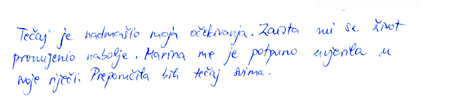 Tečaj je nadmašio moja očekivanja. Zaista mi se život
promijenio nabolje. Marina me je potpuno uvjerila u
svoje riječi. Preporučila bih tečaj svima.